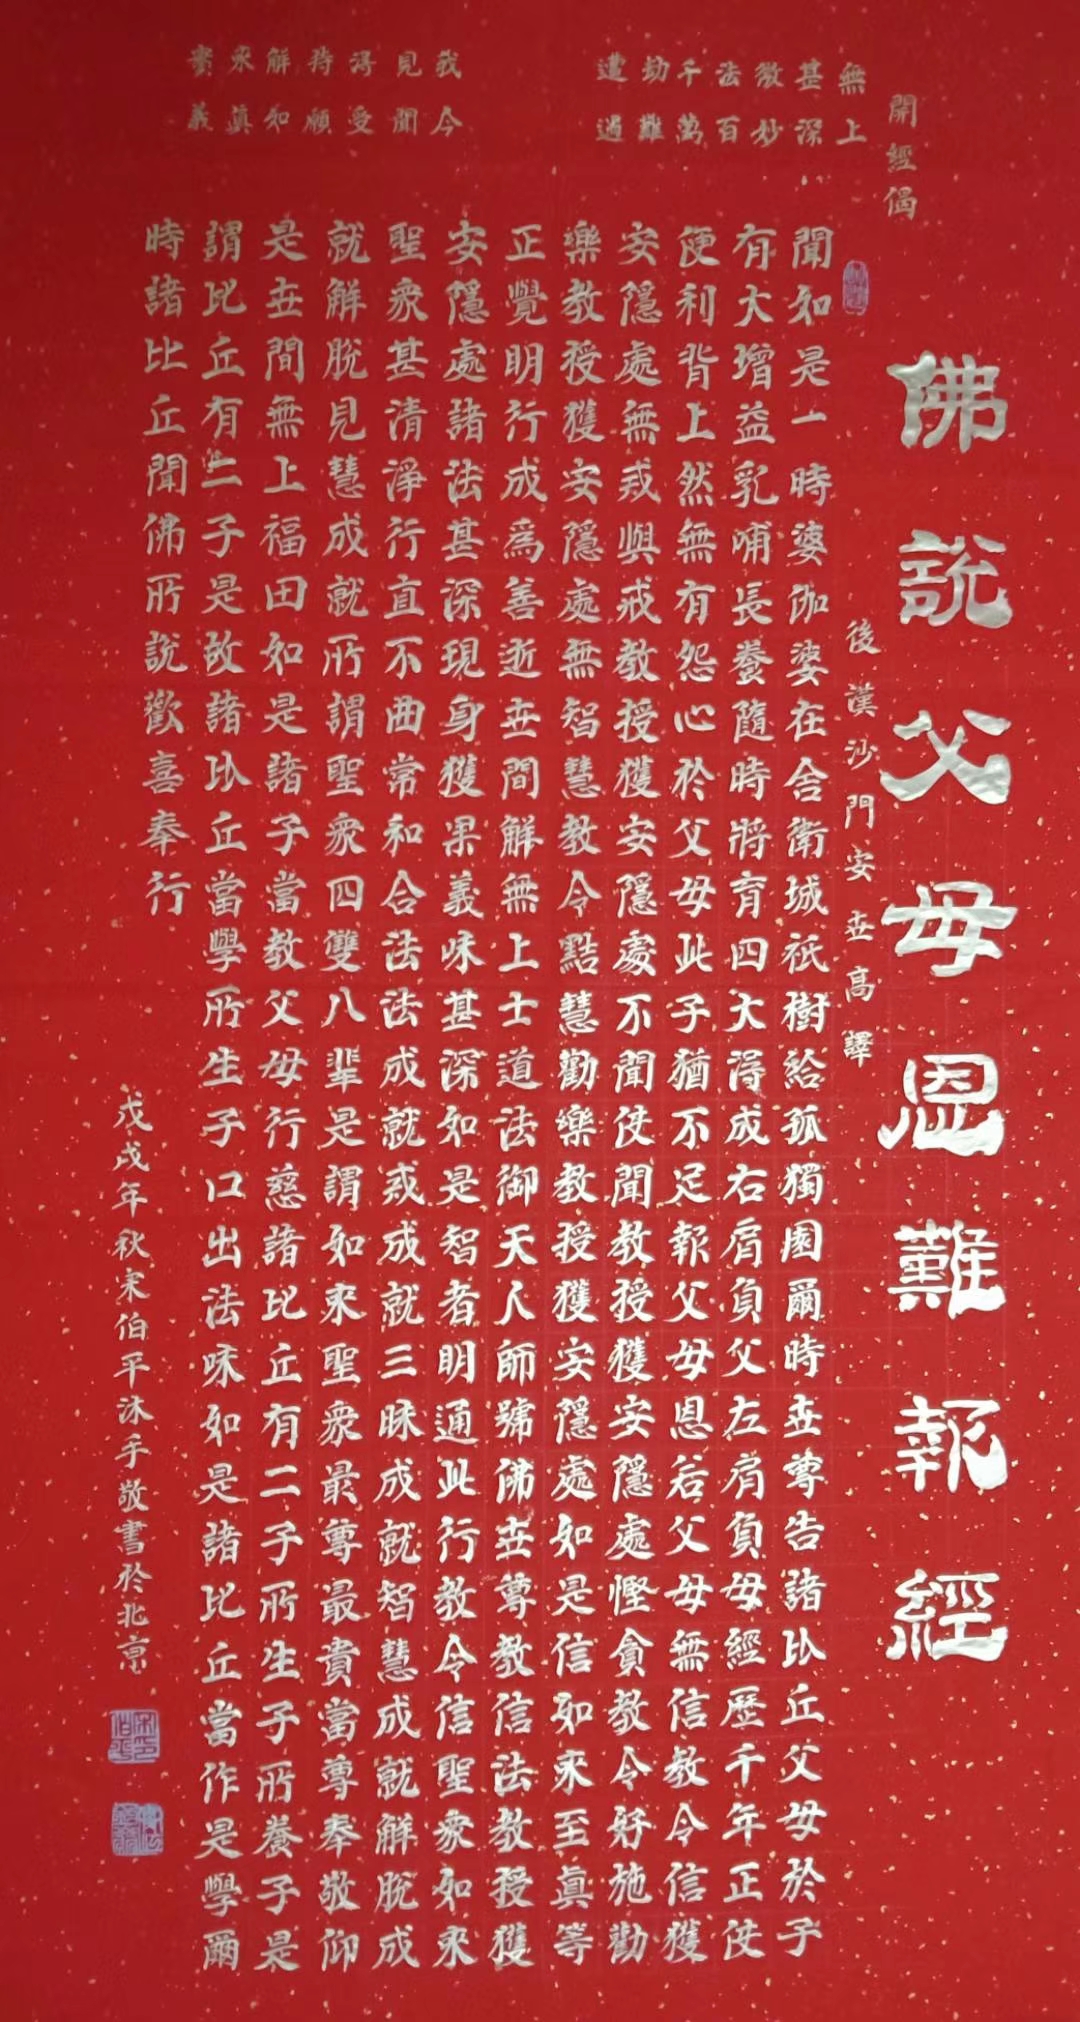 開經偈
無上
甚深
微妙
法百
千萬
劫難
遭遇
我今
見聞
得受
持願
解如
來眞
實義
佛說父母恩難報經
後漢沙門安世高譯
聞如是一時婆伽婆在舍衛城祇樹給孤獨園爾時世尊告諸比丘父母於子
有大增益乳哺長養隨時將育四大得成右肩負父左肩負母經歷千年正使
便利背上然無有怨心於父母此子猶不足報父母恩若父母無信教令信獲
安隱處無戒與戒教授獲安隱處不聞使聞教授獲安隱處慳貪教令好施勸
樂教授獲安隱處無智慧教令黠慧勸樂教授獲安隱處如是信如來至眞等
正覺明行成爲善逝世間解無上士道法御天人師號佛世尊教信法教授獲
安隱處諸法甚深現身獲果義味甚深如是智者明通此行教令信聖衆如來
聖衆甚清淨行直不曲常和合法法成就戒成就三昧成就智慧成就解脫成
就解脫見慧成就所謂聖衆四雙八輩是謂如來聖衆最尊最貴當尊奉敬仰
是世間無上福田如是諸子當教父母行慈諸比丘有二子所生子所養子是
謂比丘有二子是故諸比丘當學所生子口出法味如是諸比丘當作是學爾
時諸比丘聞佛所說歡喜奉行
戊戌年秋宋伯平沐手敬書於北京